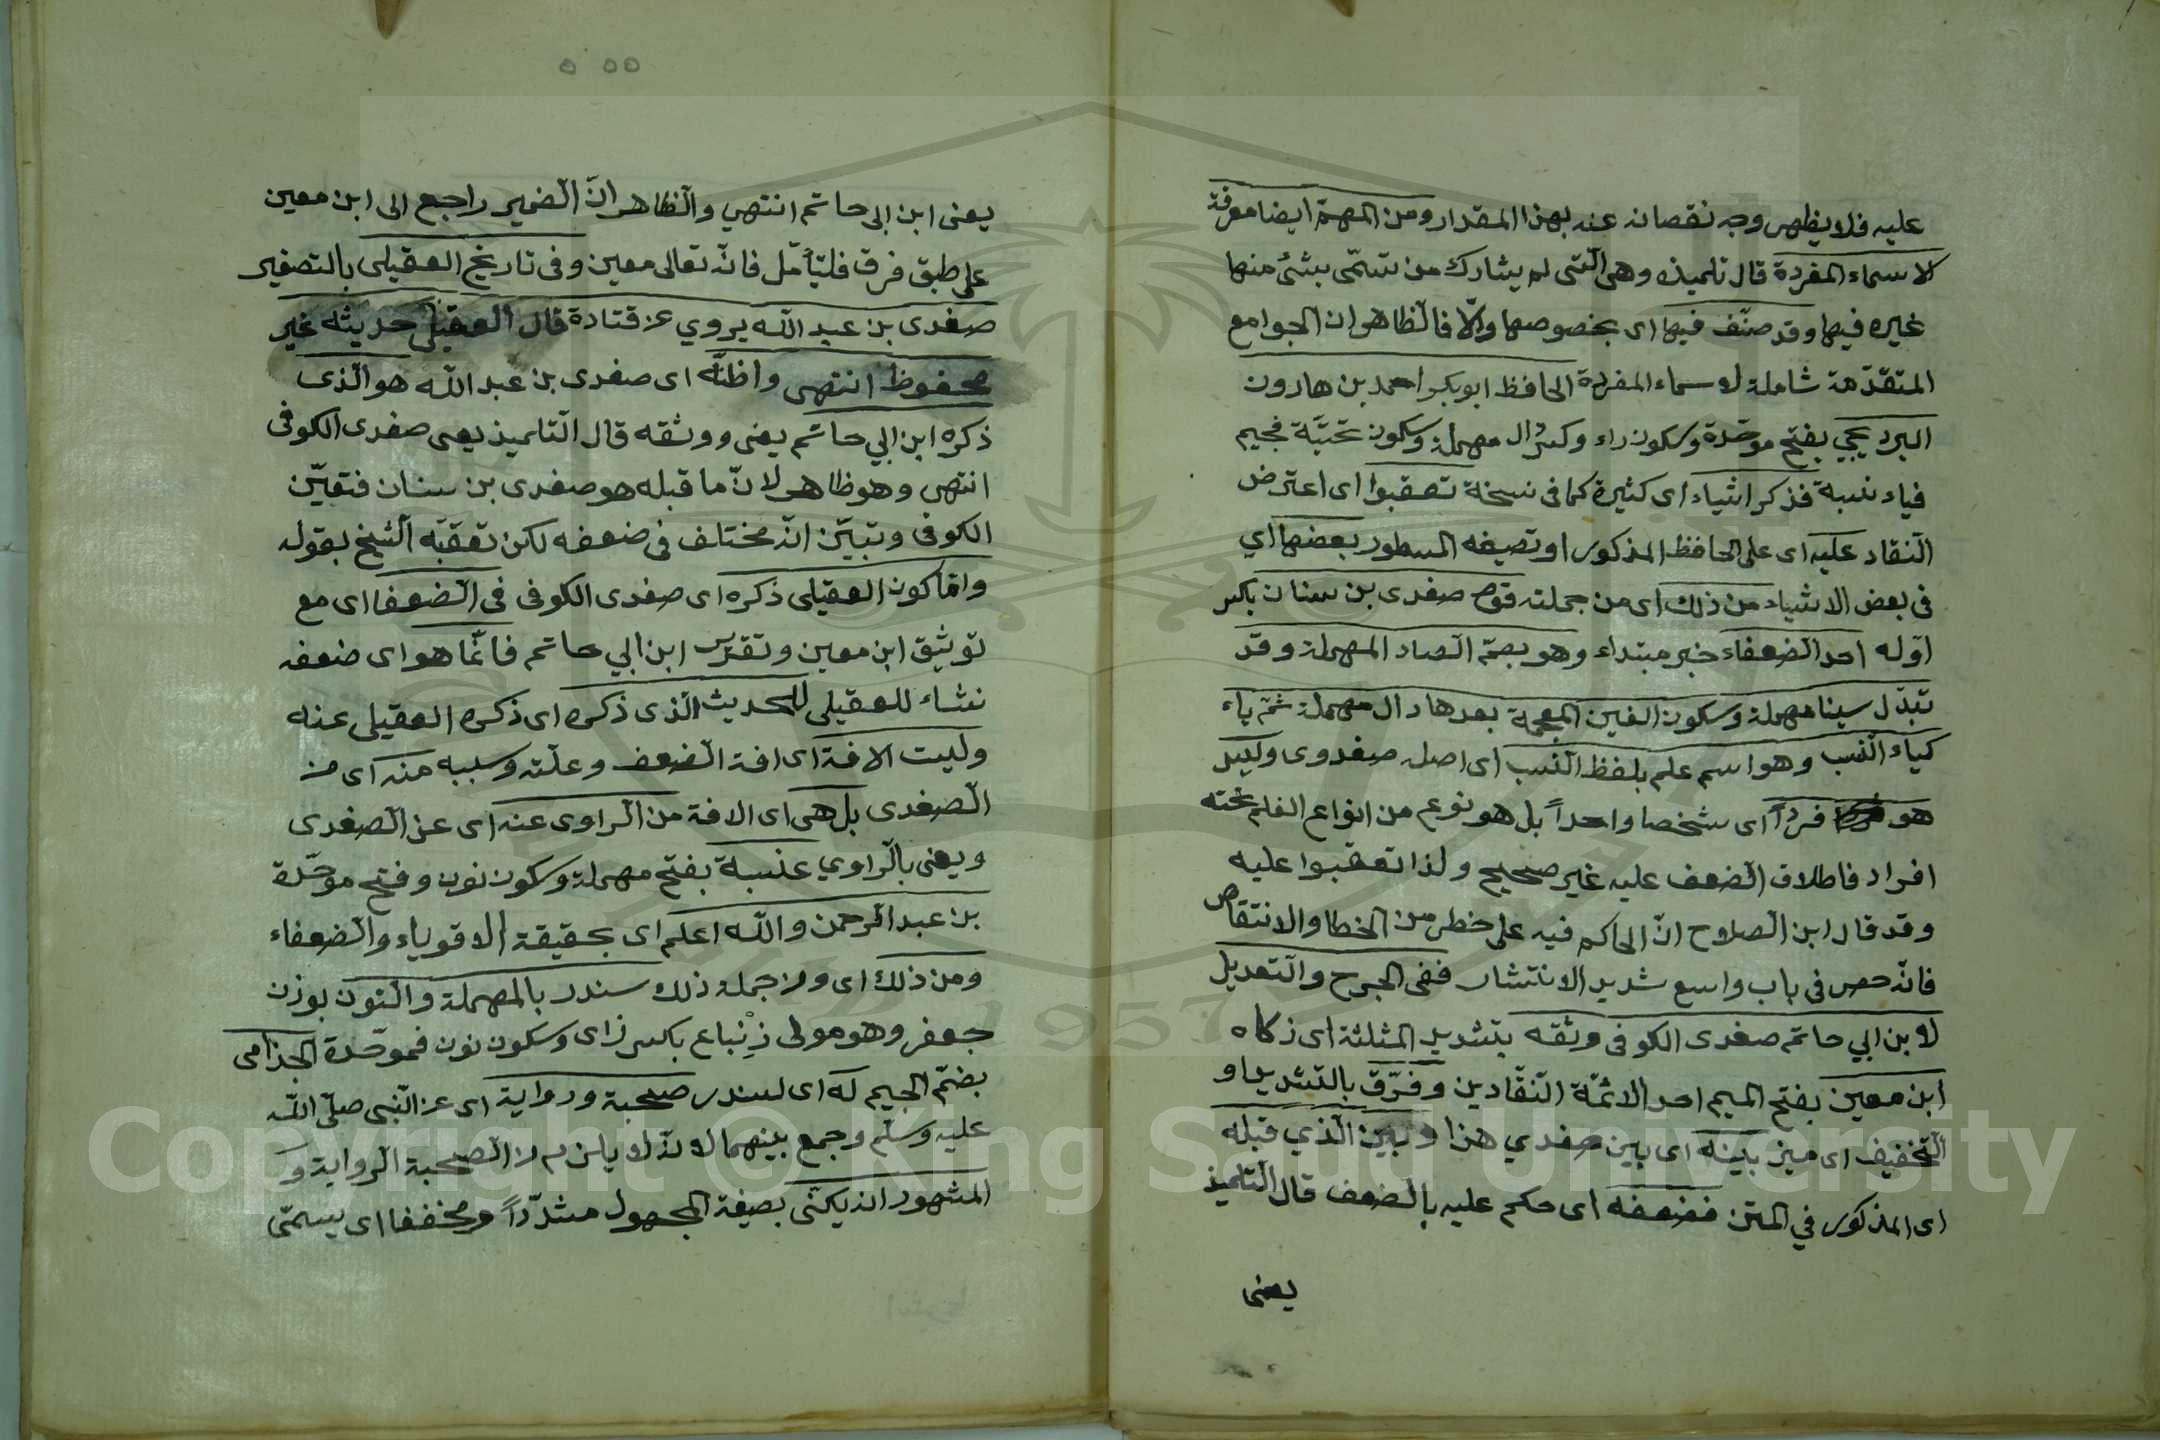 عليه فلا يظهر وجه نقصانه عنه بهذا المقدار ومن المهمّ ايضا معرفة
لاسماء المفردة قال تلميذه وهى الّتى لم يشارك من تسمّى بشئ منها
غيره فيها وقد صنّف فيها اى بخصوصها والّا فالظاهر ان الجوامع
المتقدّمة شاملة لاسماء المفردة الحافظ ابو بكر احمد بن هارون
البرديجي بفتح موحّدة وسكون راء وكسر دال مهملة وسكون تحتيّة فجيم
فياء نسبة فذكر اشياء اى كثيرة كما فى نسخة تعقبوا اى اعترض
النّقاد عليه اى على الحافظ المذكور او تصيفه المسطور بعضها اي
فى بعض الاشياء من ذلك اى من جملته قوله صغدى بن سنان بكسر
اوّله احد الضّعفاء خبر مبتداء وهو بضمّ الصّاد المهملة وقد
تبدّل سينا مهملة وسكون الغين المعجمة بعدها دال مهملة ثمّ ياء
كياء النّسب وهو اسم علم بلفظ النّسب اى اصله صغدوى وليس
هو فرداً اى شخصا واحداً بل هو نوع من انواع العلم تحته
افراد فاطلاق الضّعف عليه غير صحيح ولذا تعقّبوا عليه
وقد قال ابن الصّلاح انّ الحاكم فيه على خطر من الخطا والانتقاص
فانّه حصر فى باب واسع شديد الانتشار ففى الجرح والتّعديل
لابن ابي حاتم صغدى الكوفى وثقه بتشديد المثلثة اى زكاه
ابن معين بفتح الميم احد الائمّة النّقّادين وفرّق بالتّشديد او
التّخفيف اى ميز بينه اى بين صغدي هذا وبين الّذي قبله
اى المذكور في المتن فضعفه اى حكم عليه بالضّعف قال التّلميذ
يعنى
يعنى ابن ابى حاتم انتهي والّظاهر انّ الّضمير راجع الى ابن معين
على طبق فرق فليتأمّل فانّه تعالى معين وفى تاريخ العقيلى بالتصغير
صغدى بن عبد اللّه يروي عن قتادة قال العقيلى حديثه غير
محفوظ انتهى واظنّه اى صغدى بن عبد اللّه هو الّذى
ذكره ابن ابي حاتم يعنى ووثقه قال التّلميذ يعى صغدى الكوفى
انتهى وهو ظاهر لانّ ما قبله هو صغدى بن سنان فتعيّن
الكوفى وتبيّن انّه مختلف فى ضعفه لكن تعقّبه الشّيخ بقوله
وامّا كون العقيلى ذكره اى صغدى الكوفى فى الضّعفا اى مع
توثيق ابن معين وتقرير ابن ابي حاتم فانّما هو اى ضعفه
نشاء للعقيلى للحديث الّذى ذكره اى ذكره العقيلى عنه
وليست الافة اى افة الضّعف وعلّته وسببه منه اى من
الصّغدى بل هى اى الافة من الرّاوى عنه اى عن الصّغدى
ويعنى بالرّاوي عنبسة بفتح مهملة وسكون نون وفتح موحّدة
بن عبد الرّحمن واللّه اعلم اى بحقيقة الاقوياء والضّعفاء
ومن ذلك اى ومن جملة ذلك سندر بالمهملة والنّون بوزن
جعفر وهو مولى زنباع بكسر زاى وسكون نون فموحّدة الجذامى
بضمّ الجيم له اى لسندر صحبة ورواية اى عن النّبى صلّى اللّه
عليه وسلّم وجمع بينهما لانّه لا يلزم من الصّحبة الرّواية و
المشهور انه يكنّى بصيغة المجهول مشدّداً ومخففا اى يسمّى
Copyright © King Saud University
1957